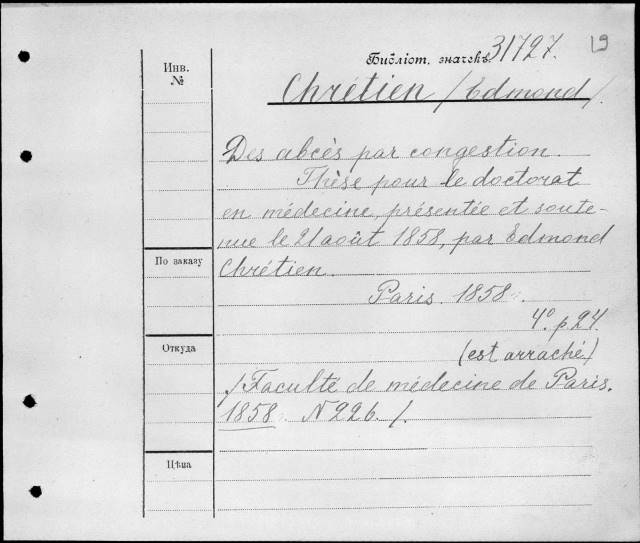 19
Библіот. значекъ 31727.
Инв.
№
Chrétien /Edmond/.
Des abcès par congestion.
Thèse pour le doctorat
en médecine, présentée et soute-
nue le 21 août 1858, par Edmond
По заказу
Chrétien.
Paris. 1858.
4º. p 24.
Откуда
(est arraché)
/Faculté de médecine de Paris.
1858. N 226./.
Цѣна